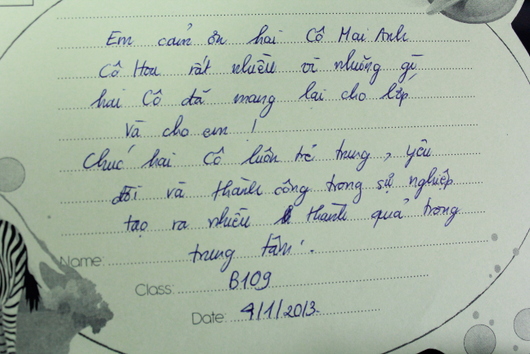 Em cảm ơn hai Cô Mai Anh
Cô Hoa rất nhiều vì những gì
hai Cô đã mang lại cho lớp
và cho em !
Chúc hai Cô luôn trẻ trung, yêu
đời và thành công trong sự nghiệp
tạo ra nhiều thành quả trong
trung tâm!
Name:
Class: B109
Date: 4/1/2013.